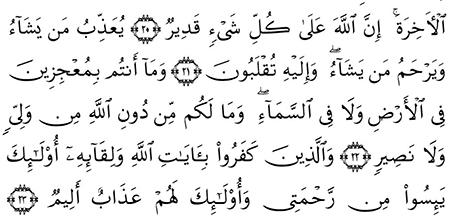 ٱلْأَخِرَةَ ۚ إِنَّ ٱللَّهَ عَلَىٰ كُلِّ شَىْءٍ قَدِيرٌ ﴿٢٠﴾ يُعَذِّبُ مَن يَشَآءُ
وَيَرْحَمُ مَن يَشَآءُ ۖ وَإِلَيْهِ تُقْلَبُونَ ﴿٢١﴾ وَمَآ أَنتُم بِمُعْجِزِينَ
فِى ٱلْأَرْضِ وَلَا فِى ٱلسَّمَآءِ ۖ وَمَا لَكُم مِّن دُونِ ٱللَّهِ مِن وَلِىٍّ
وَلَا نَصِيرٍ ﴿٢٢﴾ وَٱلَّذِينَ كَفَرُوا۟ بِـَٔايَٰتِ ٱللَّهِ وَلِقَآئِهِۦٓ أُو۟لَٰٓئِكَ
يَئِسُوا۟ مِن رَّحْمَتِى وَأُو۟لَٰٓئِكَ لَهُمْ عَذَابٌ أَلِيمٌ ﴿٢٣﴾